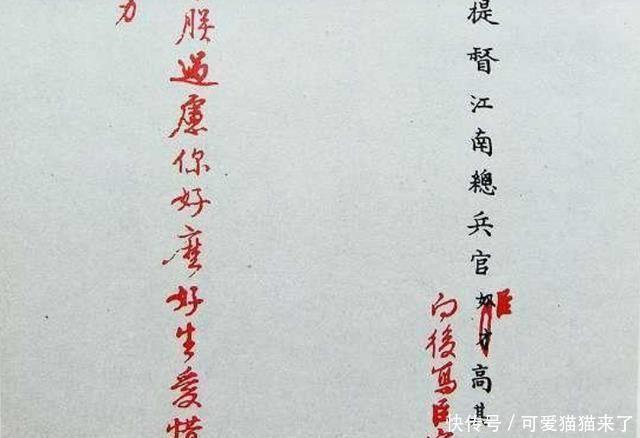 提督江南總兵官奴才高其
臣
向後寫臣
朕過慮你好麼好生愛惜
力
快传号／可爱猫猫来了